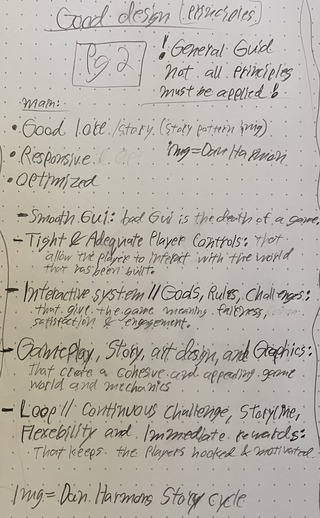 Good design (principles)
Pg 2
! General Guid
not all Principles
must be applied !
main:
• Good lore/story (Story pattern img)
• Responsive
img=Dan Harmon
• Optimized
- Smooth Gui: bad Gui is the death of a game.
- Tight & Adequate Player Controls: that
allow the player to interact with the world
that has been built.
- Interactive system // Goals, Rules, Challenges:
that give the game meaning, fairness,
satisfaction & engagement.
- Gameplay, Story, art design, and Graphics:
That create a cohesive and appealing game
world and mechanics
- Loop // Continuous Challenge, Storyline,
Flexebility and Immediate rewards:
• That keeps the Players hooked & motivated.
Img= Dan Harmons Story cycle